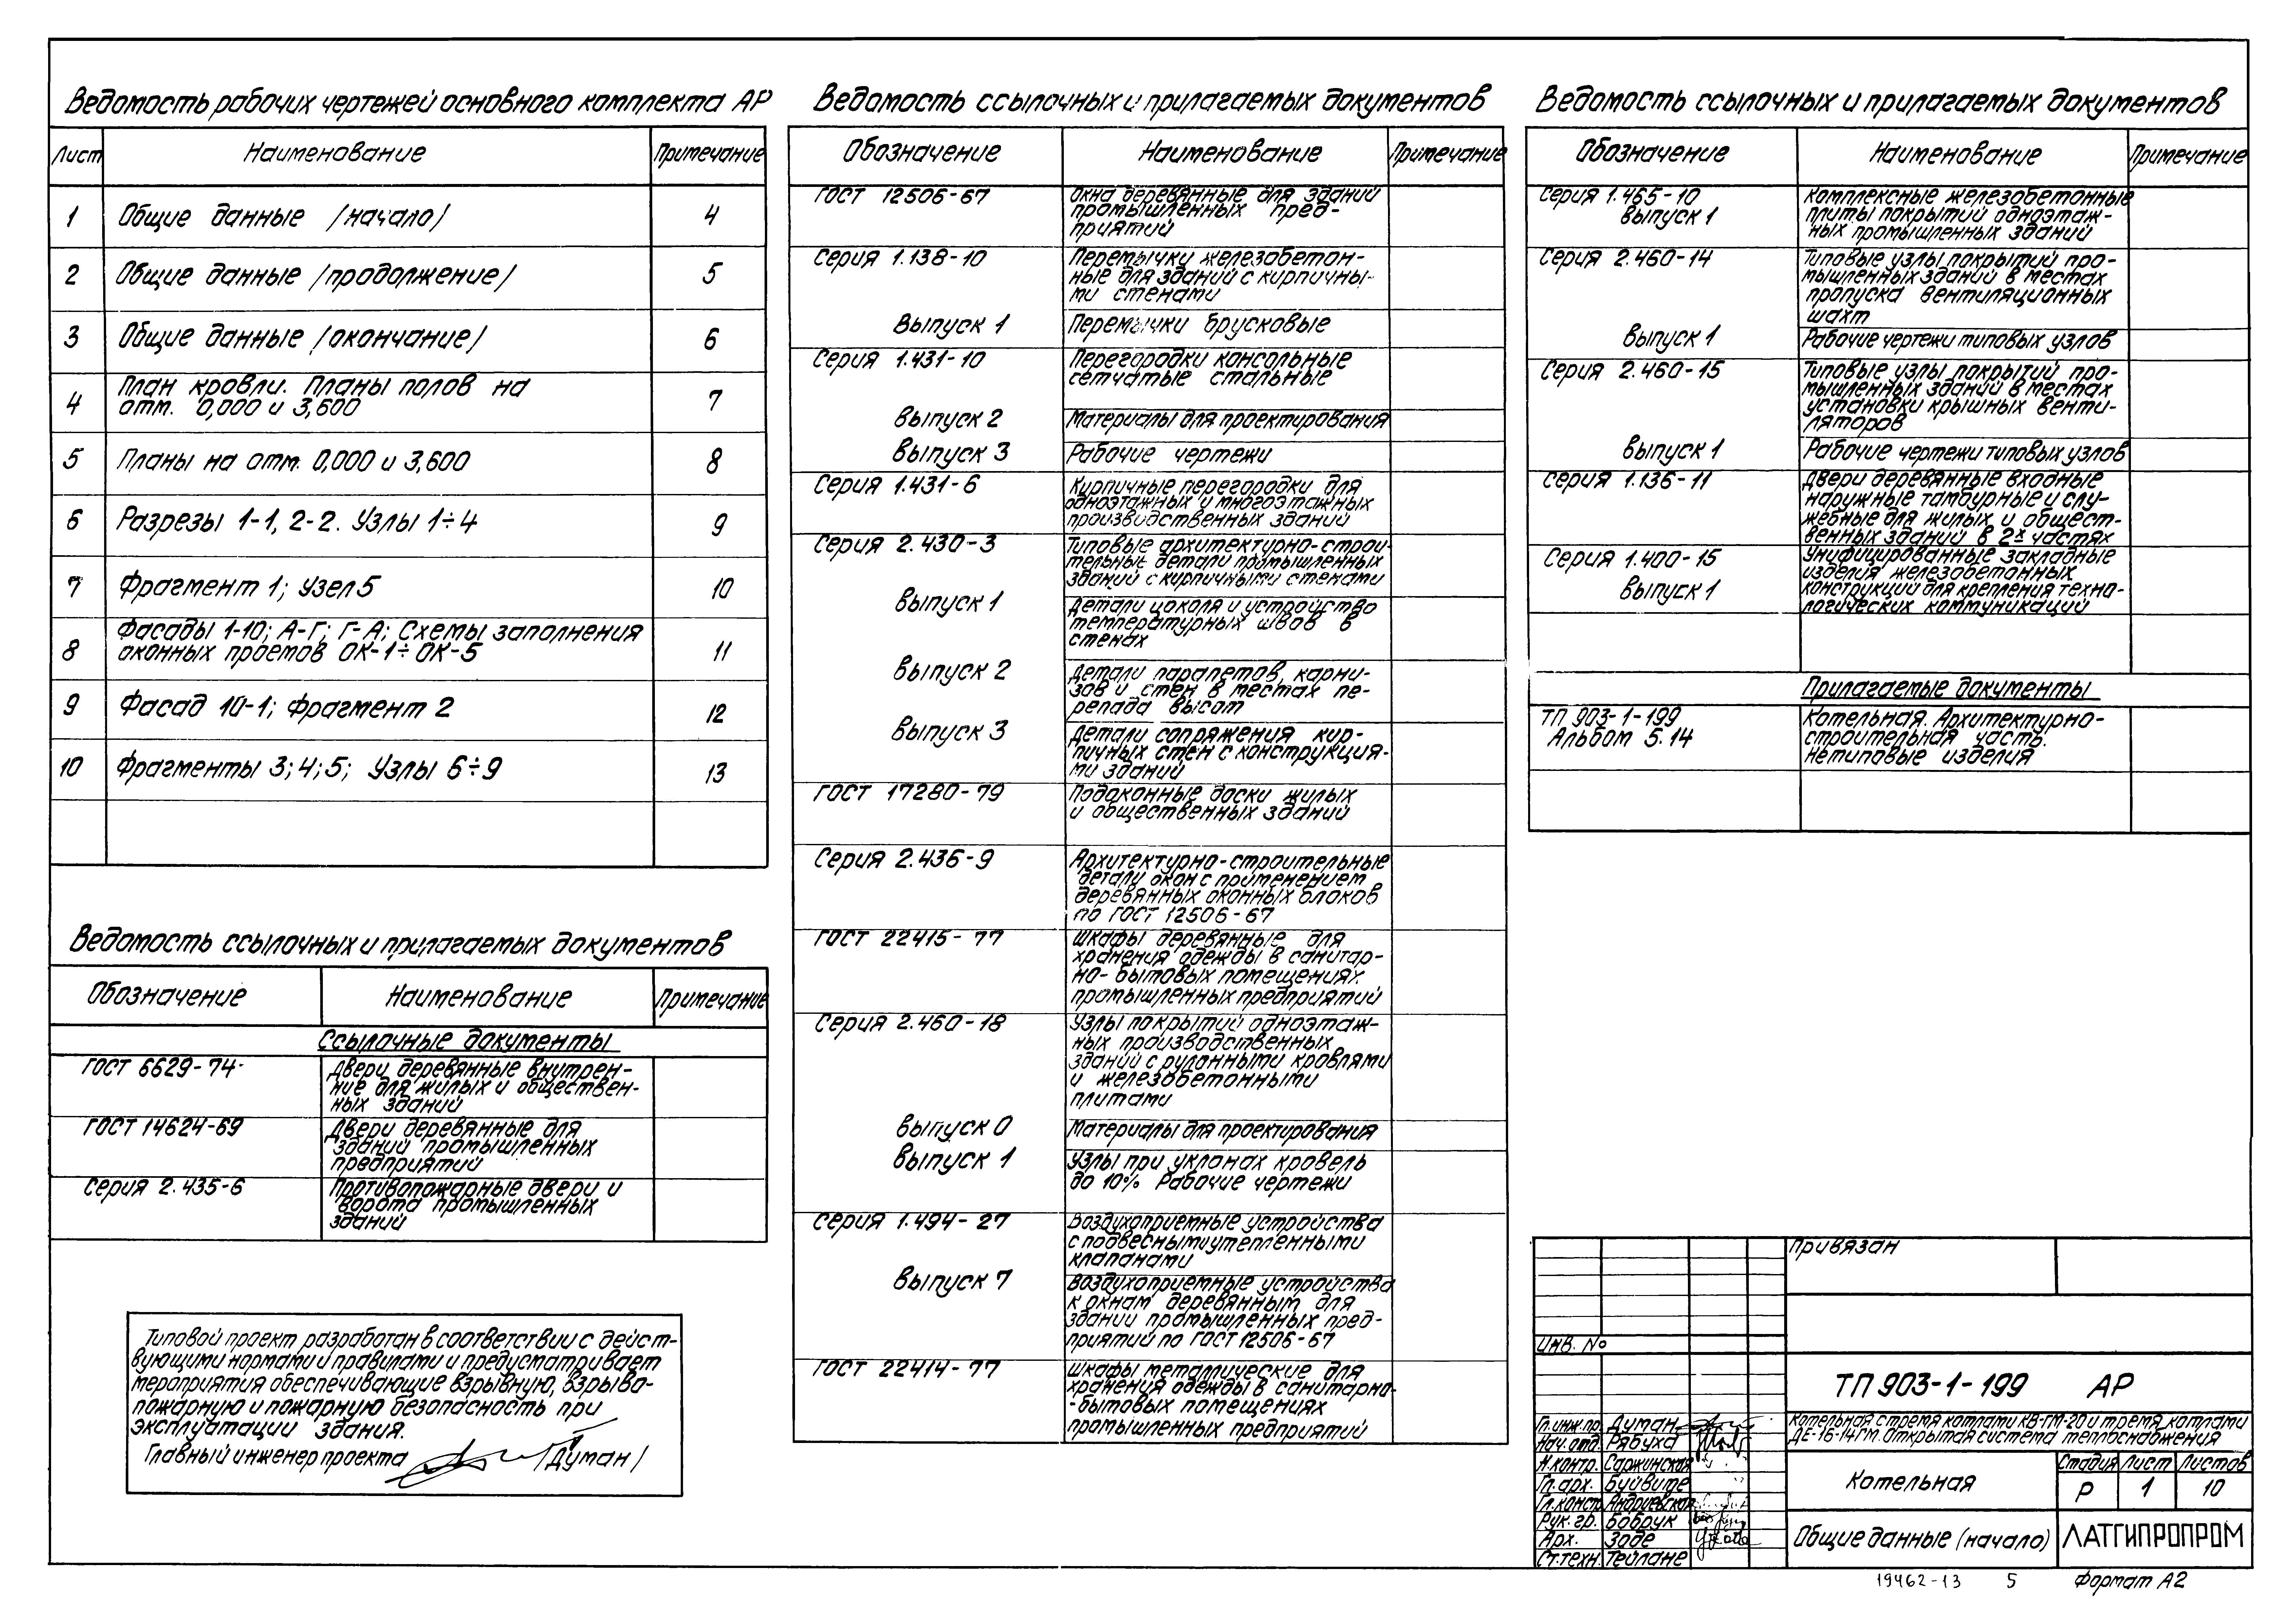 Ведомость рабочих чертежей основного комплекта АР
Лист Наименование Примечание
1 Общие данные /начало/ 4
2 Общие данные /продолжение/ 5
3 Общие данные /окончание/ 6
4 План кровли. Планы полов на
отм. 0,000 и 3,600 7
5 Планы на отм. 0,000 и 3,600 8
6 Разрезы 1-1, 2-2. Узлы 1÷4 9
7 Фрагмент 1; Узел 5 10
8 Фасады 1-10; А-Г; Г-А; Схемы заполнения
оконных проемов ОК-1÷ОК-5 11
9 Фасад 10-1; Фрагмент 2 12
10 Фрагменты 3; 4; 5; Узлы 6÷9 13
Ведомость ссылочных и прилагаемых документов
Обозначение Наименование Примечание
Ссылочные документы
ГОСТ 6629-74 Двери деревянные внутрен-
ние для жилых и обществен-
ных зданий
ГОСТ 14624-69 Двери деревянные для
зданий промышленных
предприятий
Серия 2.435-6 Противопожарные двери и
ворота промышленных
зданий
Типовой проект разработан в соответствии с дейст-
вующими нормами и правилами и предусматривает
мероприятия обеспечивающие взрывную, взрыво-
пожарную и пожарную безопасность при
эксплуатации здания.
Главный инженер проекта /Думан/
Ведомость ссылочных и прилагаемых документов
Обозначение Наименование Примечание
ГОСТ 12506-67 Окна деревянные для зданий
промышленных пред-
приятий
Серия 1.138-10 Перемычки железобетон-
ные для зданий с кирпичны-
ми стенами
Выпуск 1 Перемычки брусковые
Серия 1.431-10 Перегородки консольные
сетчатые стальные
выпуск 2 Материалы для проектирования
выпуск 3 Рабочие чертежи
Серия 1.431-6 Кирпичные перегородки для
одноэтажных и многоэтажных
производственных зданий
Серия 2.430-3 Типовые архитектурно-строи-
тельные детали промышленных
зданий с кирпичными стенами
выпуск 1 Детали цоколя и устройство
температурных швов в
стенах
выпуск 2 Детали парапетов, карни-
зов и стен в местах пе-
репада высот
выпуск 3 Детали сопряжения кир-
пичных стен с конструкция-
ми зданий
ГОСТ 17280-79 Подоконные доски жилых
и общественных зданий
Серия 2.436-9 Архитектурно-строительные
детали окон с применением
деревянных оконных блоков
по ГОСТ 12506-67
ГОСТ 22415-77 Шкафы деревянные для
хранения одежды в санитар-
но-бытовых помещениях
промышленных предприятий
Серия 2.460-18 Узлы покрытий одноэтаж-
ных производственных
зданий с рулонными кровлями
и железобетонными
плитами
выпуск 0 Материалы для проектирования
выпуск 1 Узлы при уклонах кровель
до 10% Рабочие чертежи
Серия 1.494-27 Воздухоприемные устройства
с подвесными утепленными
клапанами
выпуск 7 Воздухоприемные устройства
к окнам деревянным для
зданий промышленных пред-
приятий по ГОСТ 12506-67
ГОСТ 22414-77 Шкафы металлические для
хранения одежды в санитарно-
-бытовых помещениях
промышленных предприятий
Ведомость ссылочных и прилагаемых документов
Обозначение Наименование Примечание
Серия 1.465-10 Комплексные железобетонные
выпуск 1 плиты покрытий одноэтаж-
ных промышленных зданий
Серия 2.460-14 Типовые узлы покрытий про-
мышленных зданий в местах
пропуска вентиляционных
шахт
выпуск 1 Рабочие чертежи типовых узлов
Серия 2.460-15 Типовые узлы покрытий про-
мышленных зданий в местах
установки крышных венти-
ляторов
выпуск 1 Рабочие чертежи типовых узлов
Серия 1.136-11 Двери деревянные входные
наружные тамбурные и слу-
жебные для жилых и общест-
венных зданий в 2х частях
Серия 1.400-15 Унифицированные закладные
изделия железобетонных
выпуск 1 конструкций для крепления техно-
логических коммуникаций
Прилагаемые документы
ТП 903-1-199 Котельная. Архитектурно-
Альбом 5.14 строительная часть.
Нетиповые изделия
Привязан
Инв. №
ТП 903-1-199 АР
Котельная с тремя котлами КВ-ГМ-20 и тремя котлами
ДЕ-16-14ГМ. Открытая система теплоснабжения
Гл.инж.пр. Думан
Нач.отд. Рябуха
Н.контр. Саржинская
Гл.арх. Буйвите
Гл.констр. Андриевская
Рук.гр. Бобрук
Арх. Заде
Ст.техн. Тейлане
Котельная
Стадия Лист Листов
Р 1 10
Общие данные (начало)
ЛАТГИПРОПРОМ
19462-13 5 Формат А2